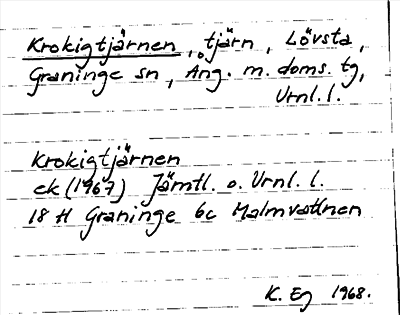 Krokigtjärnen, tjärn, Lövsta,
Graninge sn, Ång. m. doms. tg,
Vrnl. l.
Krokigtjärnen
ek (1967) Jämtl. o. Vrnl. l.
18 H Graninge 6c Malmvattnen
K. Eg 1968.